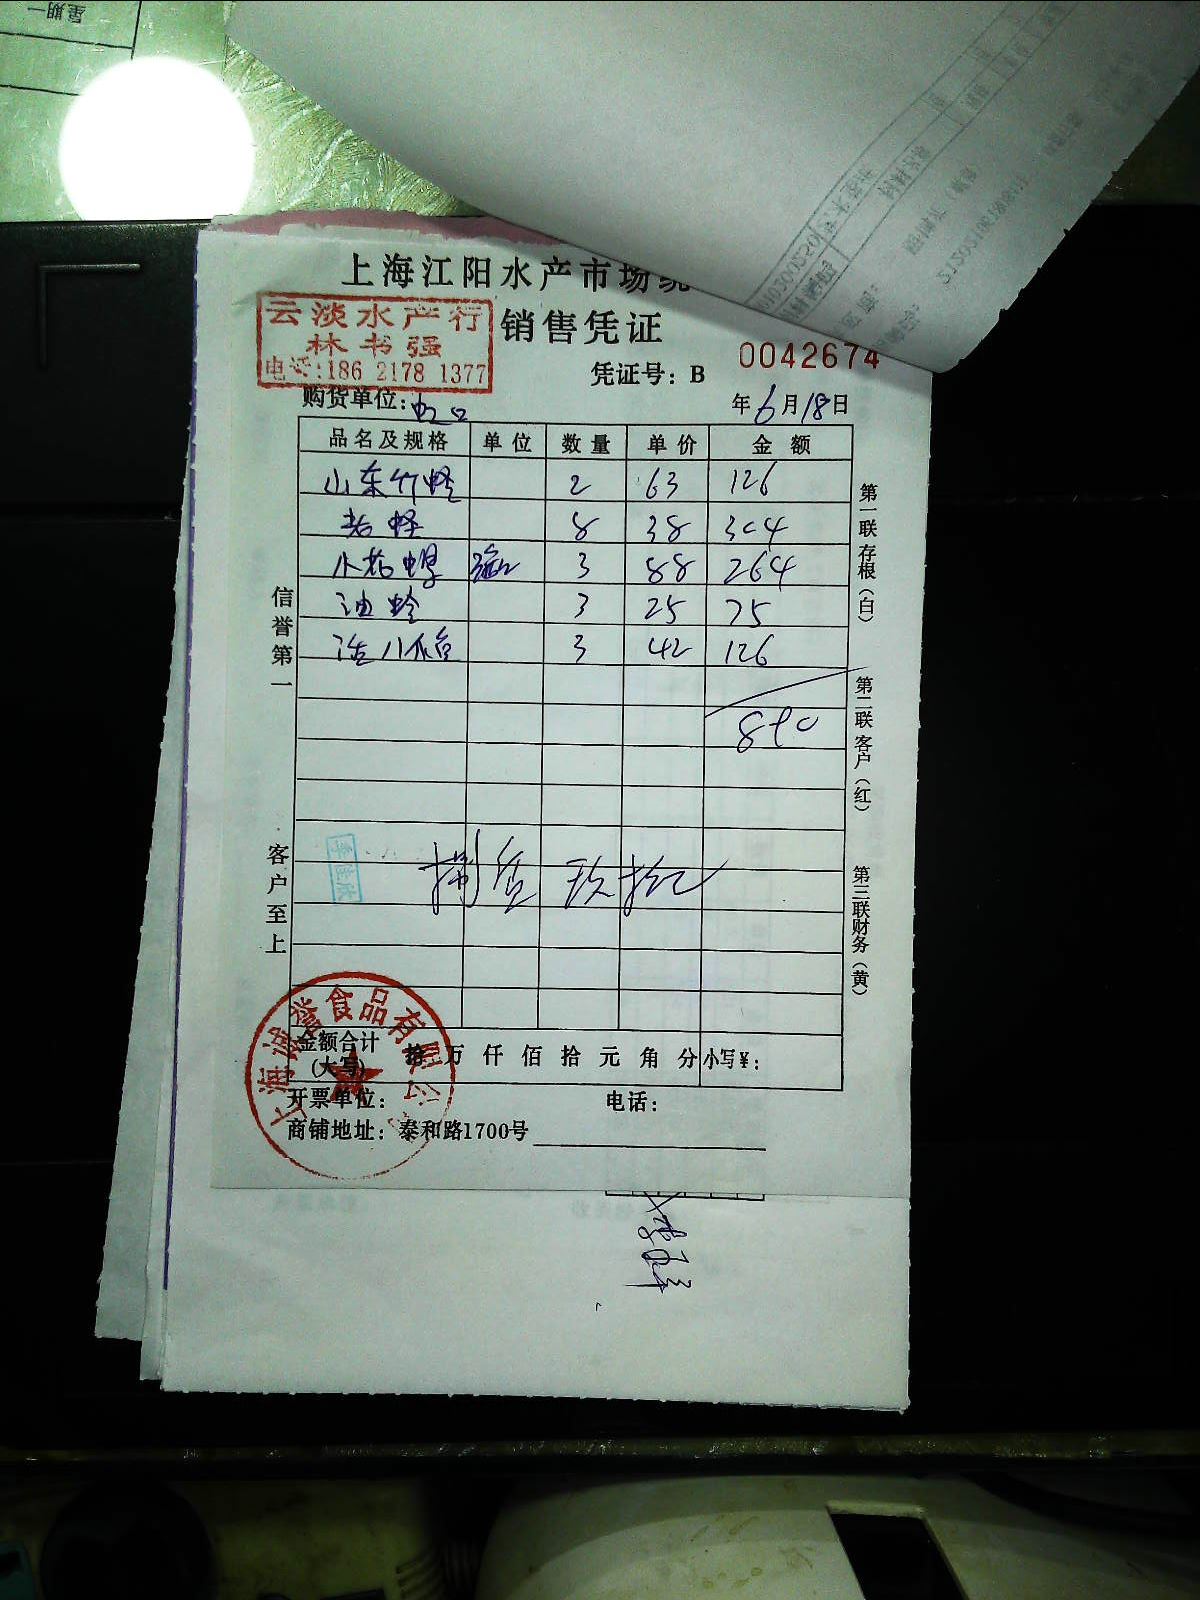 星期一
上海江阳水产市场统
云淡水产行
林书强
电话:186 2178 1377
销售凭证
凭证号：B 0042674
购货单位：虹口
年6月18日
品名及规格 单位 数量 单价 金额
山东竹蛏 2 63 126
老蛏 8 38 304
小花螺 3 88 264
油蛤 3 25 75
活八爪鱼 3 42 126
890
捌佰玖拾元
信誉第一
客户至上
第一联存根（白）
第二联客户（红）
第三联财务（黄）
金额合计
(大写) 拾 万 仟 佰 拾 元 角 分 小写¥：
开票单位： 电话：
商铺地址：泰和路1700号